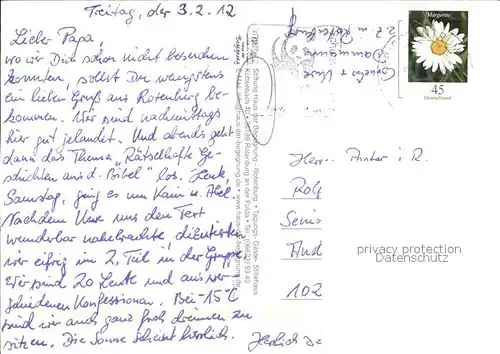 Freitag, der 3.2.12
Lieber Papa,
wo wir Dich schon nicht besuchen
konnten, sollst Du wenigstens
ein lieben Gruß aus Rotenburg be-
kommen. Wir sind nachmittags
hier gut gelandet. Und abends geht
dann das Thema „Rätselhafte Ge-
schichten aus d. Bibel" los. Heute,
Samstag, ging es um Kain u. Abel.
Nachdem Uwe uns den Text
wunderbar nahebrachte, diskutierten
wir eifrig im 2. Teil in der Gruppe.
Wir sind 20 Leute und aus ver-
schiedenen Konfessionen. Bei -15°C
sind wir auch ganz froh drinnen zu
sitzen. Die Sonne scheint herrlich.
Herzlich
z.Z. in Rotenburg
Stiftung Haus der Begegnung - Rotenburg • Tagungs- Gäste- Stillehaus
36199 Rotenburg an der Fulda • Tel. (06623) 93 40
Margerite
45
Deutschland
Herr Pastor i. R.
Rolf
102
privacy protection
Datenschutz